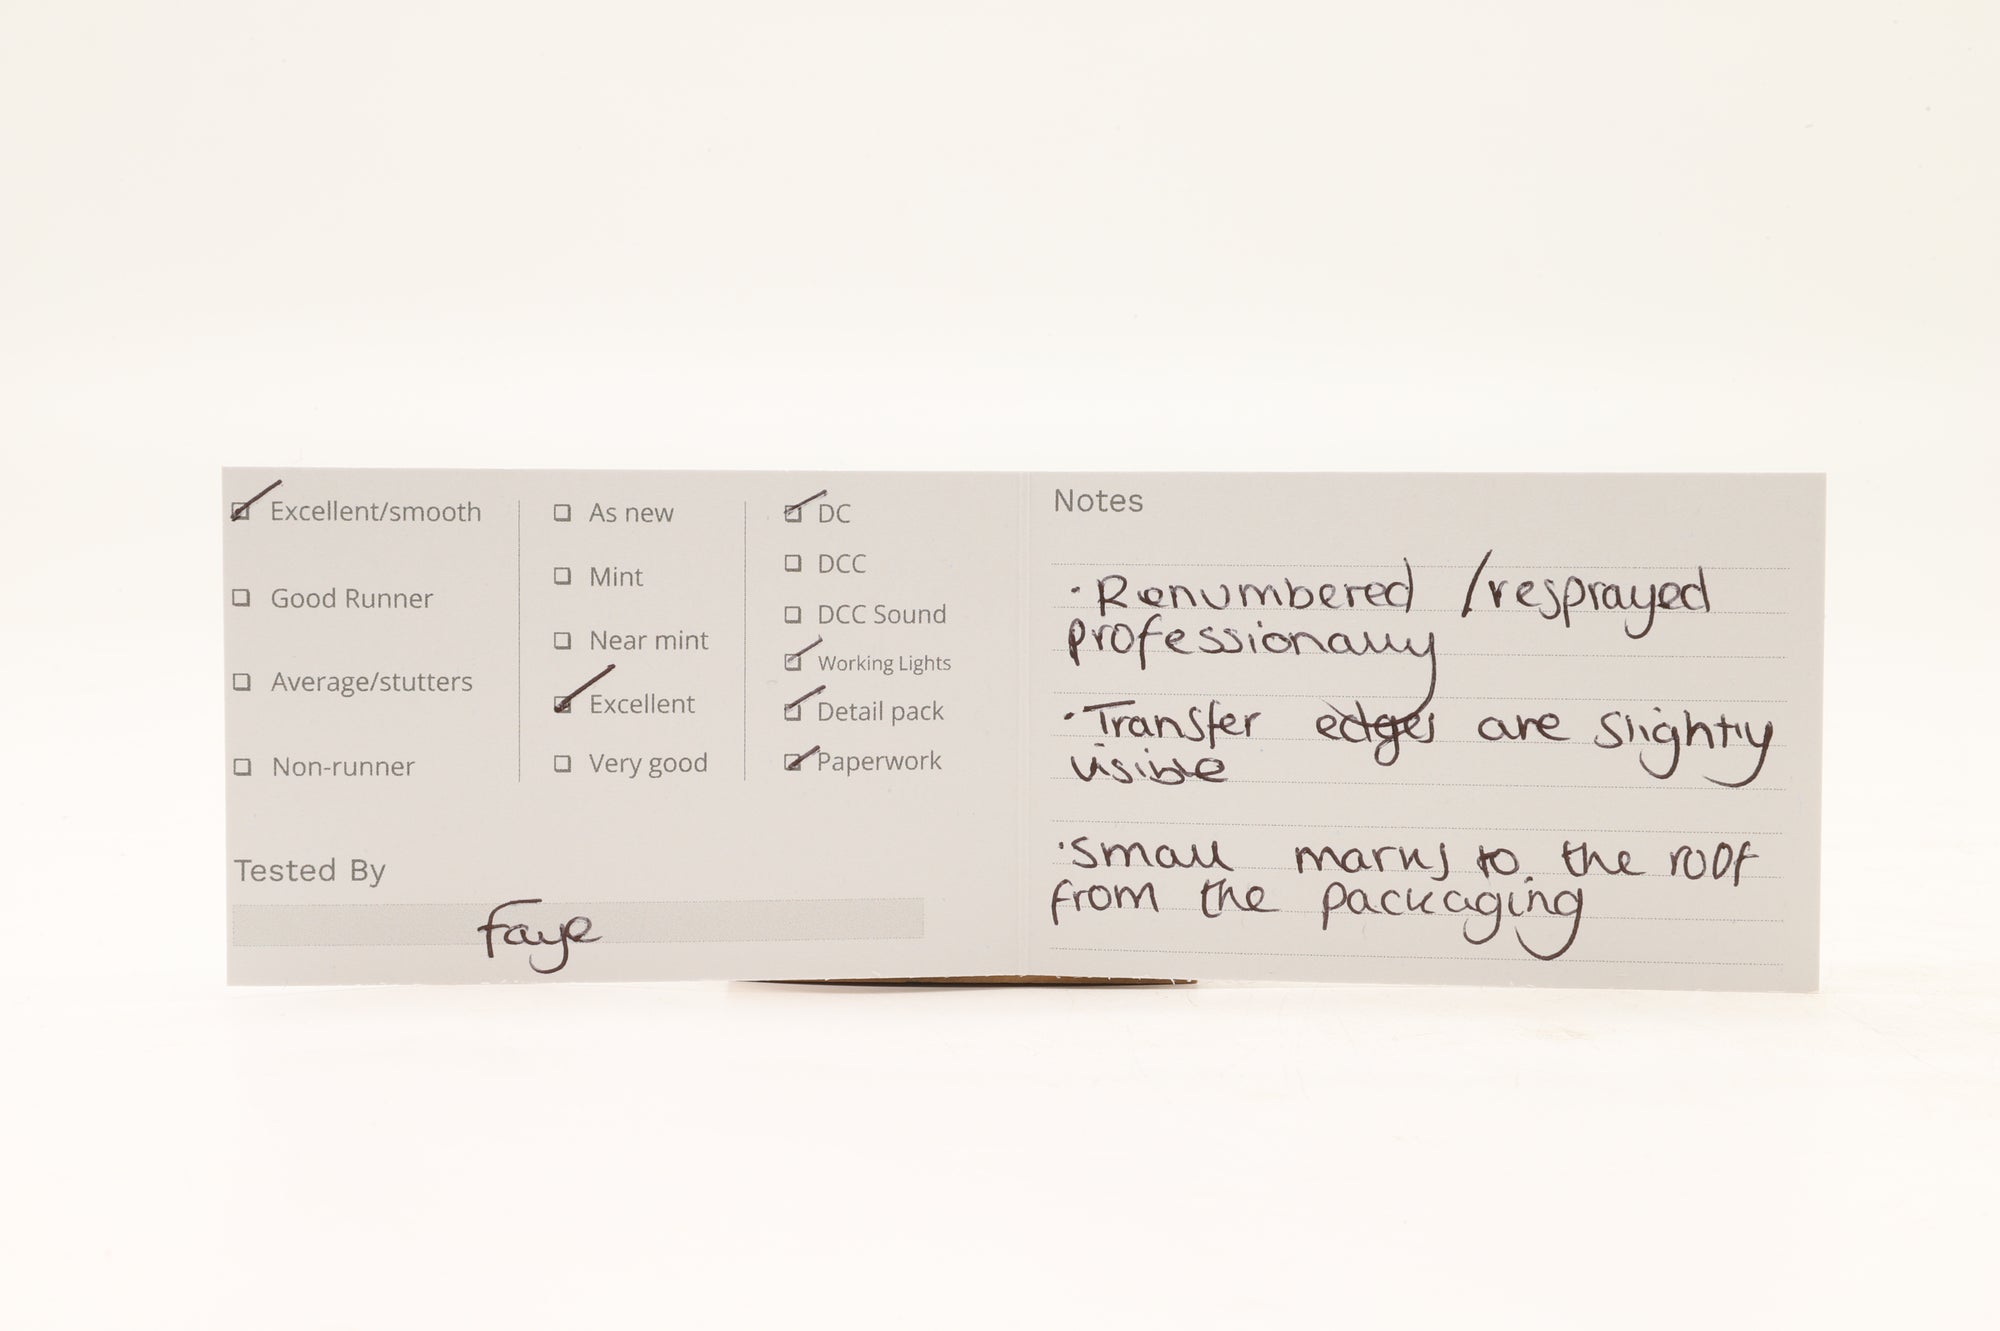 Excellent/smooth
Good Runner
Average/stutters
Non-runner
As new
Mint
Near mint
Excellent
Very good
DC
DCC
DCC Sound
Working Lights
Detail pack
Paperwork
Tested By
Faye
Notes
· Renumbered /resprayed
professionally
· Transfer edges are slightly
visible
· Small marks to the roof
from the packaging